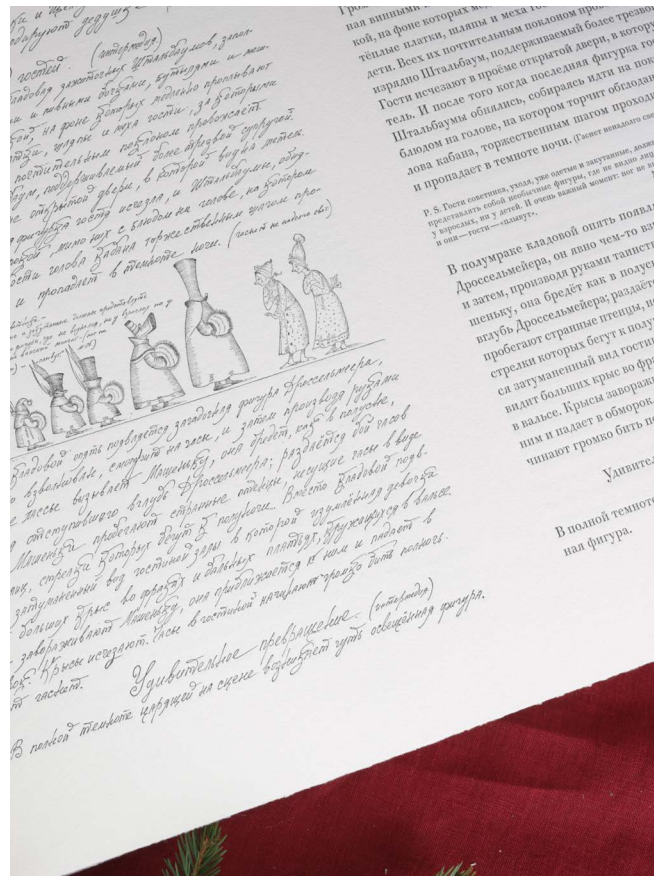 ки и цел
даруют дедушке
гостей. (интермедия)
ладовая зажиточных Штальбаумов, запол-
и и пивными бочками, бутылями и мен-
кой, на фоне которых медленно проплывают
шляпы и меха гости, за которыми
почтительным поклоном провожает
поддерживаемый более трезвой супругой.
открытой двери, в которой видна метель.
фигурка гостя исчезла, и Штальбаумы, обня-
мимо них с блюдом на голове, на котором
голова кабана торжественным шагом про-
и пропадает в темноте ночи. (гаснет не надолго свет)
кладовой опять появляется загадочная фигура Дроссельмейера,
взволнован, смотрит на часы, и затем производя руками
пассы вызывает Машеньку, она бредёт, как в полусне,
отступившего вглубь Дроссельмейера; раздаётся бой часов
Машеньки пробегают странные птенцы, несущие часы в виде
яиц, стрелки которых бегут к полуночи. Вместо кладовой появ.
затуманенный вид гостиной залы в которой изумлённая девочка
больших крыс во фраках и бальных платьях, кружащихся в вальсе.
завораживают Машеньку, она приближается к ним и падает в
Крысы исчезают. Часы в гостиной начинают громко бить полночь.
гаснет.
Удивительное превращение. (интермедия)
В полной темноте царящей на сцене возникает чуть освещённая фигура.
Гром
ная винными и
кой, на фоне которых ме
тёплые платки, шляпы и меха го
дети. Всех их почтительным поклоном пров
изрядно Штальбаум, поддерживаемый более трезво
Гости исчезают в проёме открытой двери, в котору
тель. И после того когда последняя фигурка гос
Штальбаумы обнялись, собираясь идти на пок
блюдом на голове, на котором торчит обглодан
лова кабана, торжественным шагом проход
и пропадает в темноте ночи. (Гаснет ненадолго све
P. S. Гости советника, уходя, уже одетые и закутанные, долж
представлять собой необычные фигуры, где не видно лиц
у взрослых, ни у детей. И очень важный момент: ног не ви
и они—гости—«плывут».
В полумраке кладовой опять появл
Дроссельмейера, он явно чем-то вз
и затем, производя руками таинст
шеньку, она бредёт как в полус
вглубь Дроссельмейера; раздаёт
пробегают странные птенцы, не
стрелки которых бегут к полу
ся затуманенный вид гости
видит больших крыс во фра
в вальсе. Крысы заворажи
ним и падает в обморок.
чинают громко бить по
Удивител
В полной темнот
ная фигура.